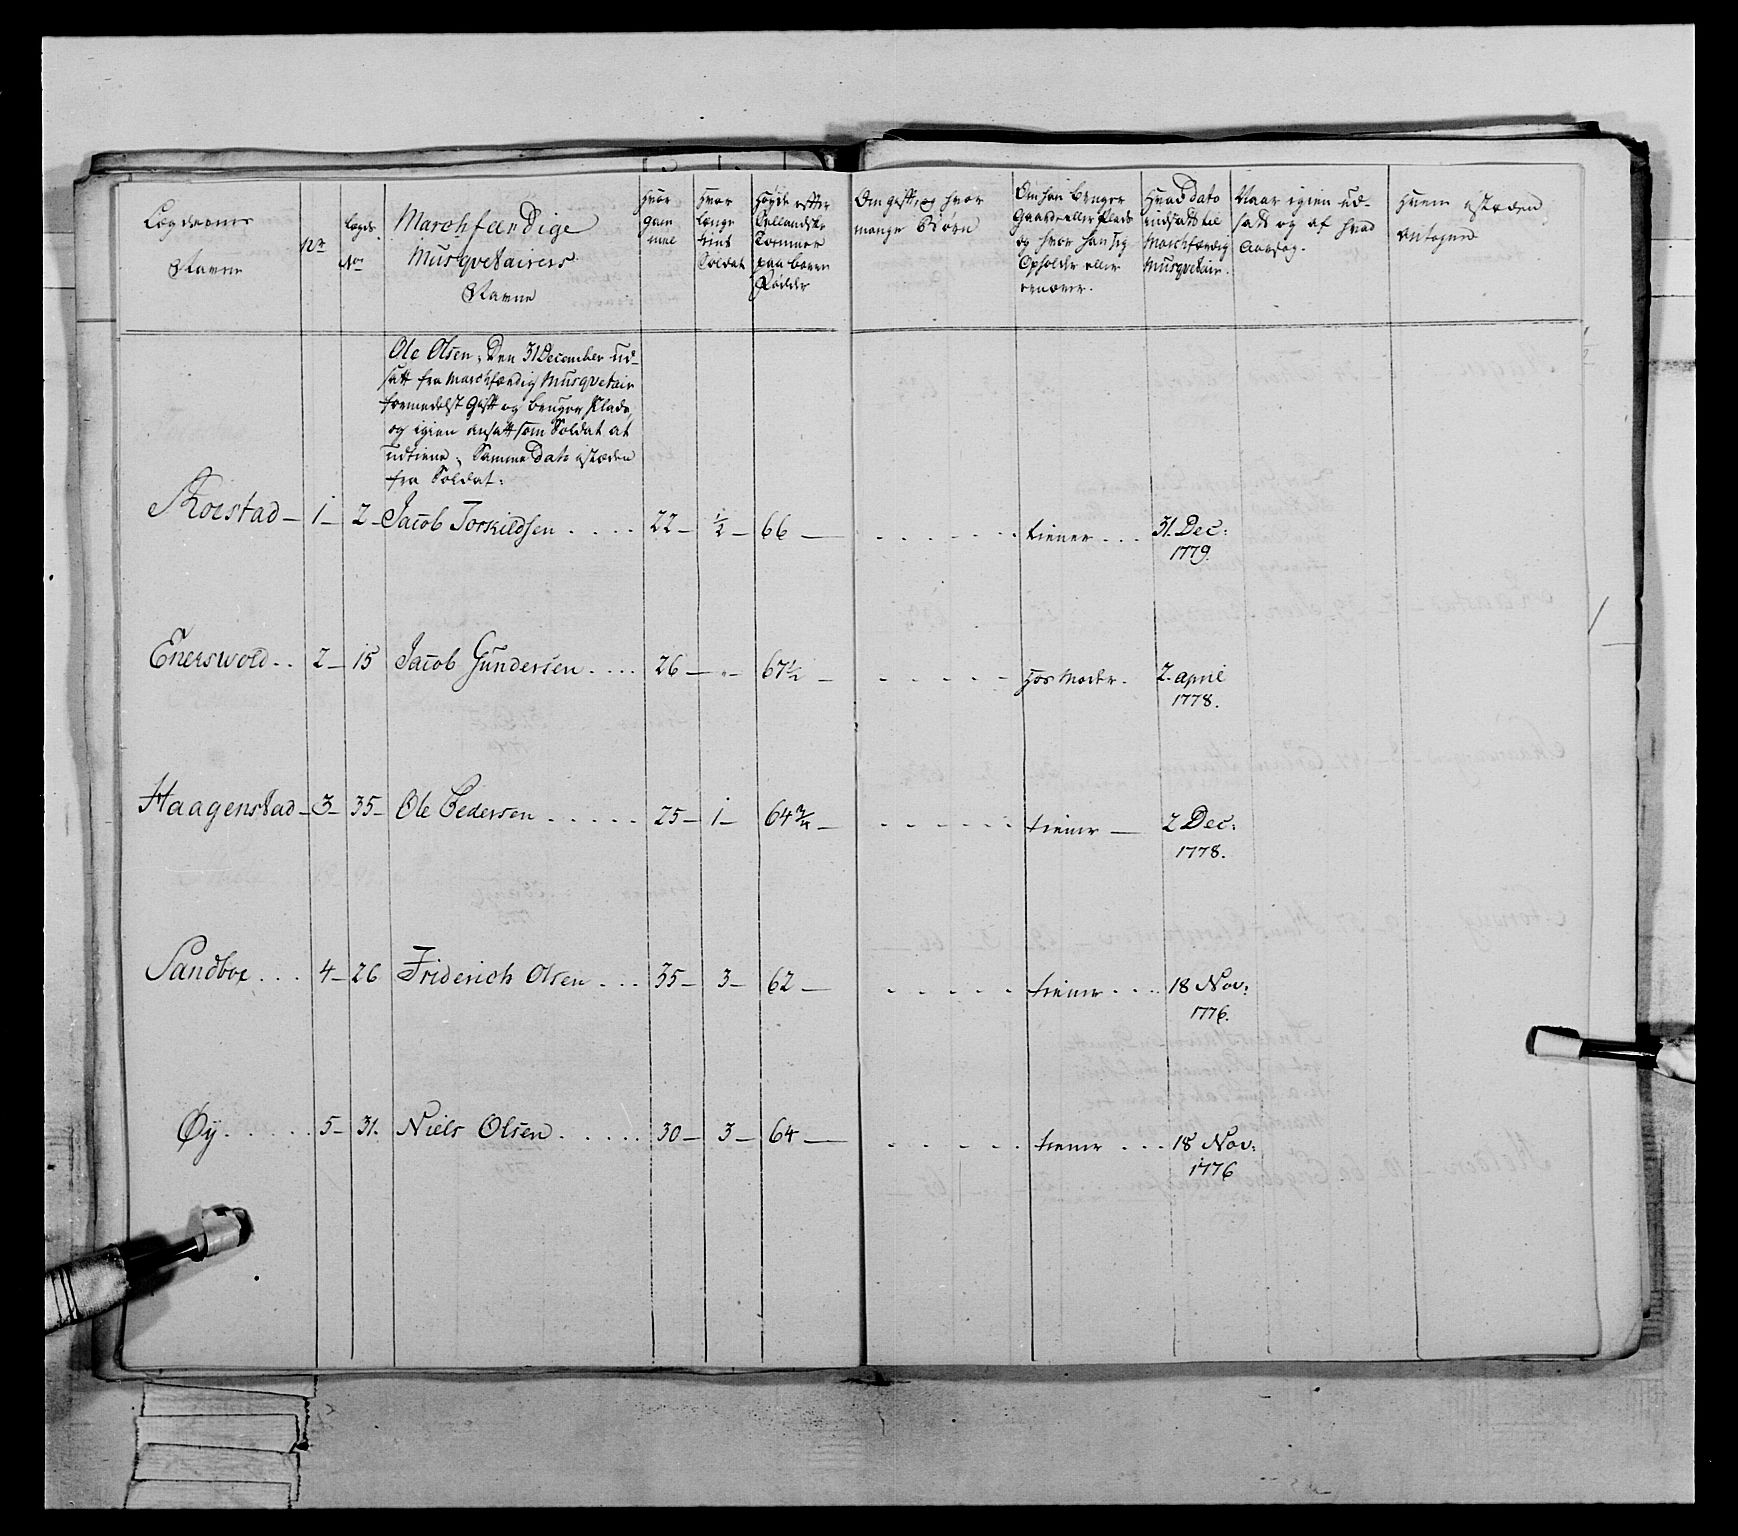 Lægdernes
Navne
Nr
Lægds
No
Marchfærdige
Musqvetairers
Navne
Hvor
gam
mel
Hvor
længe
tint
Soldat
Høyde efter
Sellandske
Tommer
paa bare
Fødder
Om gift, og hvor
mange Børn
Om han bruger
Gaard eller Plads
og hvor han sig
Opholder eller
ernærer.
Hvad Dato
indsatt til
Marchfærdig
Musqvetair.
Naar igien ud-
satt og af hvad
Aarsag.
Hvem istæden
antagen
Ole Olsen, Den 31 December ud-
satt fra Marchfærdig Musqvetair
formedelst Gift og bruger Plads,
og igien ansatt som Soldat at
udtiene, Samme Dato istæden
fra Soldat:
Roestad - 1 - 2 - Jacob Torkildsen . . . . 22 - ½ - 66 - . . . . . . tiener . . . 31. Dec:
1779.
Enerswold . . 2 - 15 Jacob Gundersen . . . . 26 - " - 67½ - - - - - - hos Moder. 2. april
1778.
Haagenstad - 3 - 35 - Ole Pedersen . . . . . 25 - 1 - 64¾ - - - - - - tiener - 2 Dec:
1778.
Sandboe . . . 4 - 26 Friderich Olsen . . . 35 - 3 - 62 - - - - - - tiener . . . 18 Nov:
1776.
Øy . . . . . 5 - 31. Niels Olsen . . . . . 30 - 3 - 64 - - - - - tiener . . . 18 Nov:
1776